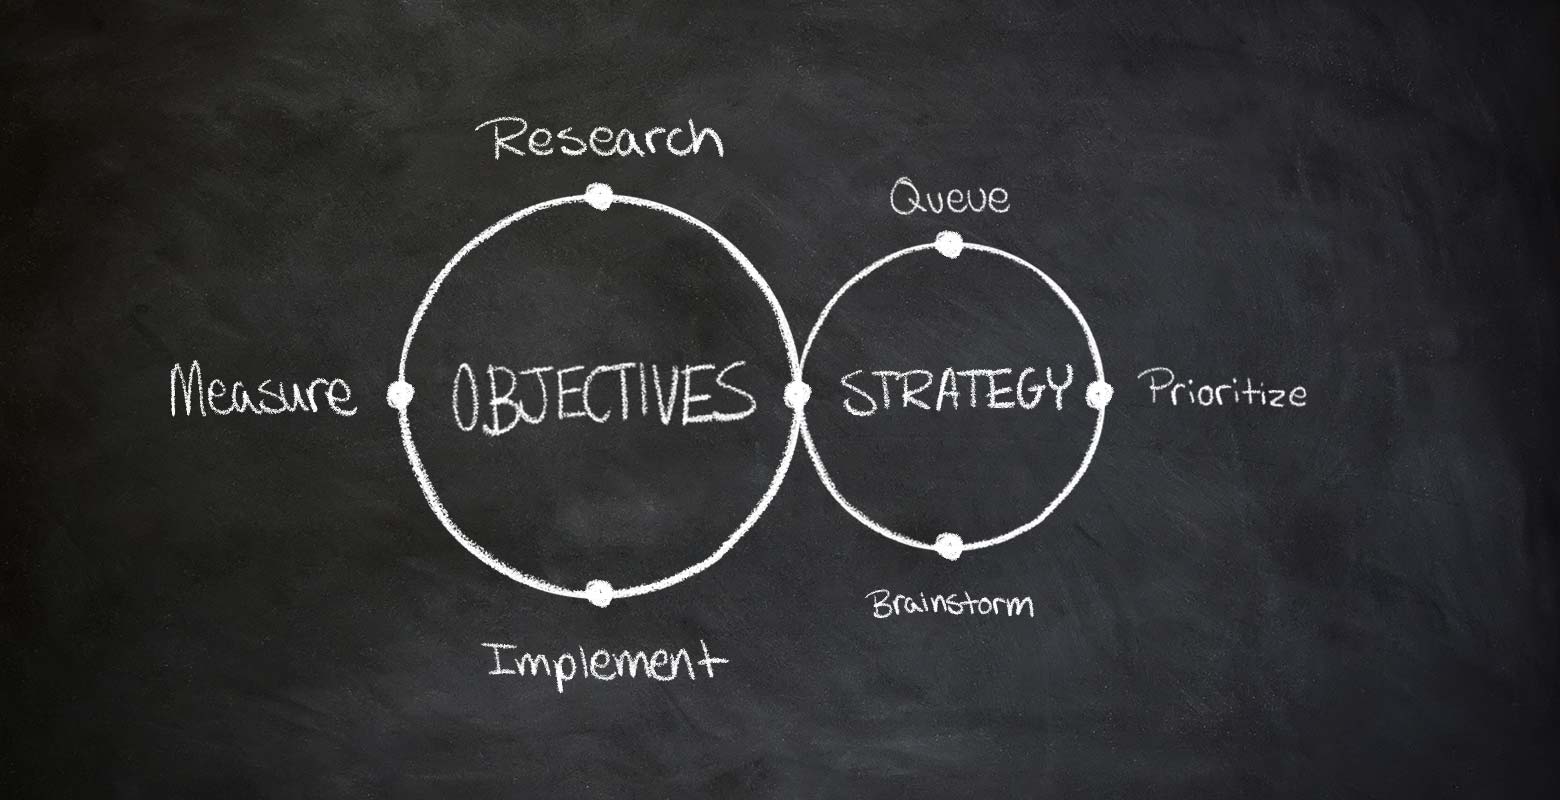 Research
Queue
Measure
OBJECTIVES
STRATEGY
Prioritize
Brainstorm
Implement